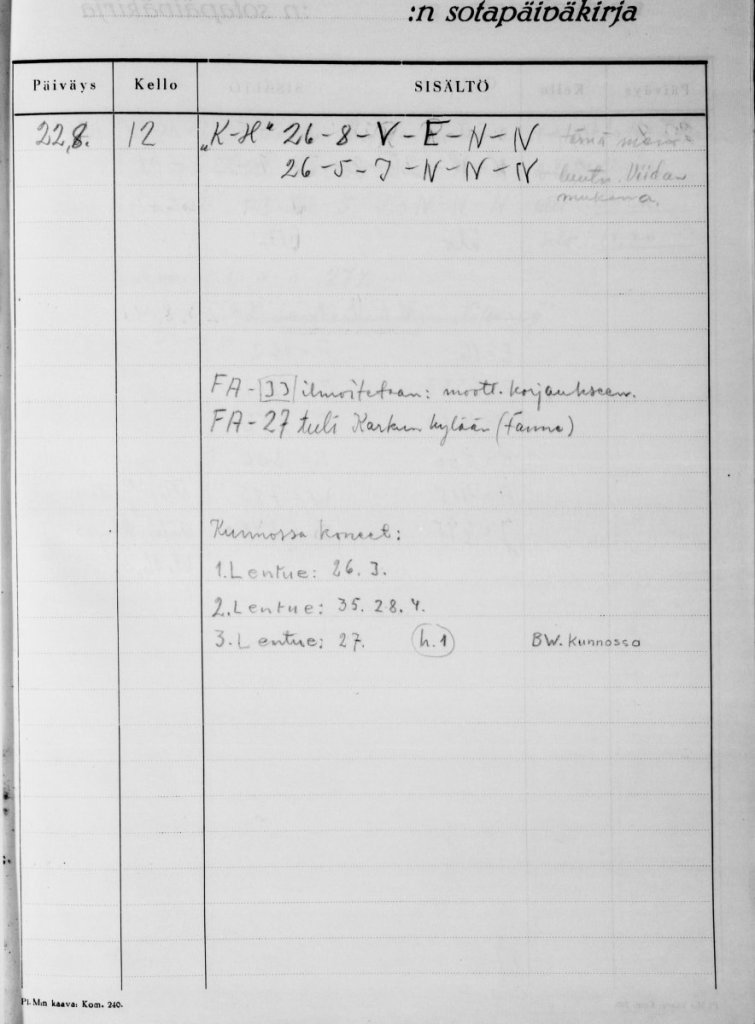 :n sotapäiväkirja
Päiväys Kello SISÄLTÖ
22.8. 12 „K-H" 26-8-V-E-N-N tämä
26-5-J-N-N-N luutn. Viidan
mukana.
FA-33 ilmoitetaan: moott. korjaukseen.
FA-27 tuli Karkun kylään
Kunnossa koneet:
1. Lentue: 26. 3.
2. Lentue: 35. 28. 4.
3. Lentue: 27. h.1 BW. kunnossa
Pl. M:n kaava: Kom. 240.